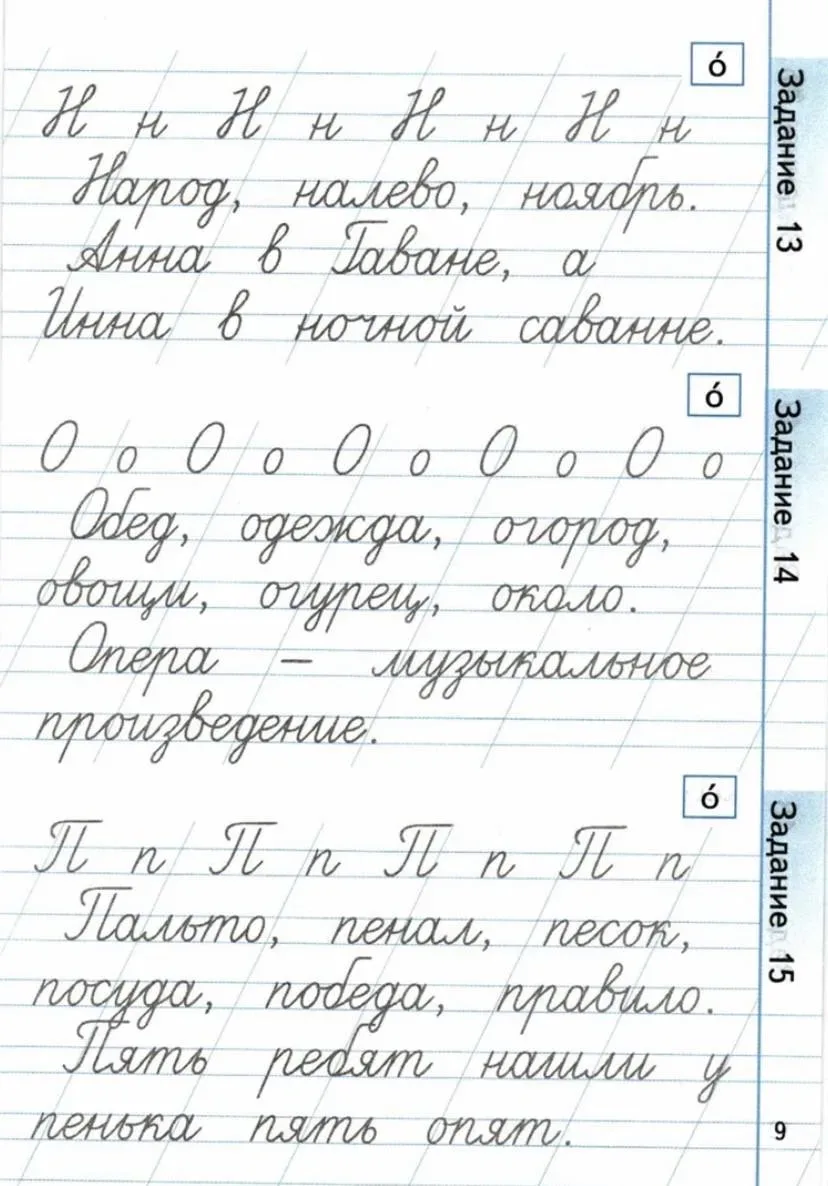 о́
Задание 13
Н н Н н Н н Н н
Народ, налево, ноябрь.
Анна в Гаване, а
Инна в ночной саванне.
о́
Задание 14
О о О о О о О о О о
Обед, одежда, огород,
овощи, огурец, около.
Опера – музыкальное
произведение.
о́
Задание 15
П п П п П п П п
Пальто, пенал, песок,
посуда, победа, правило.
Пять ребят нашли у
пенька пять опят.
9